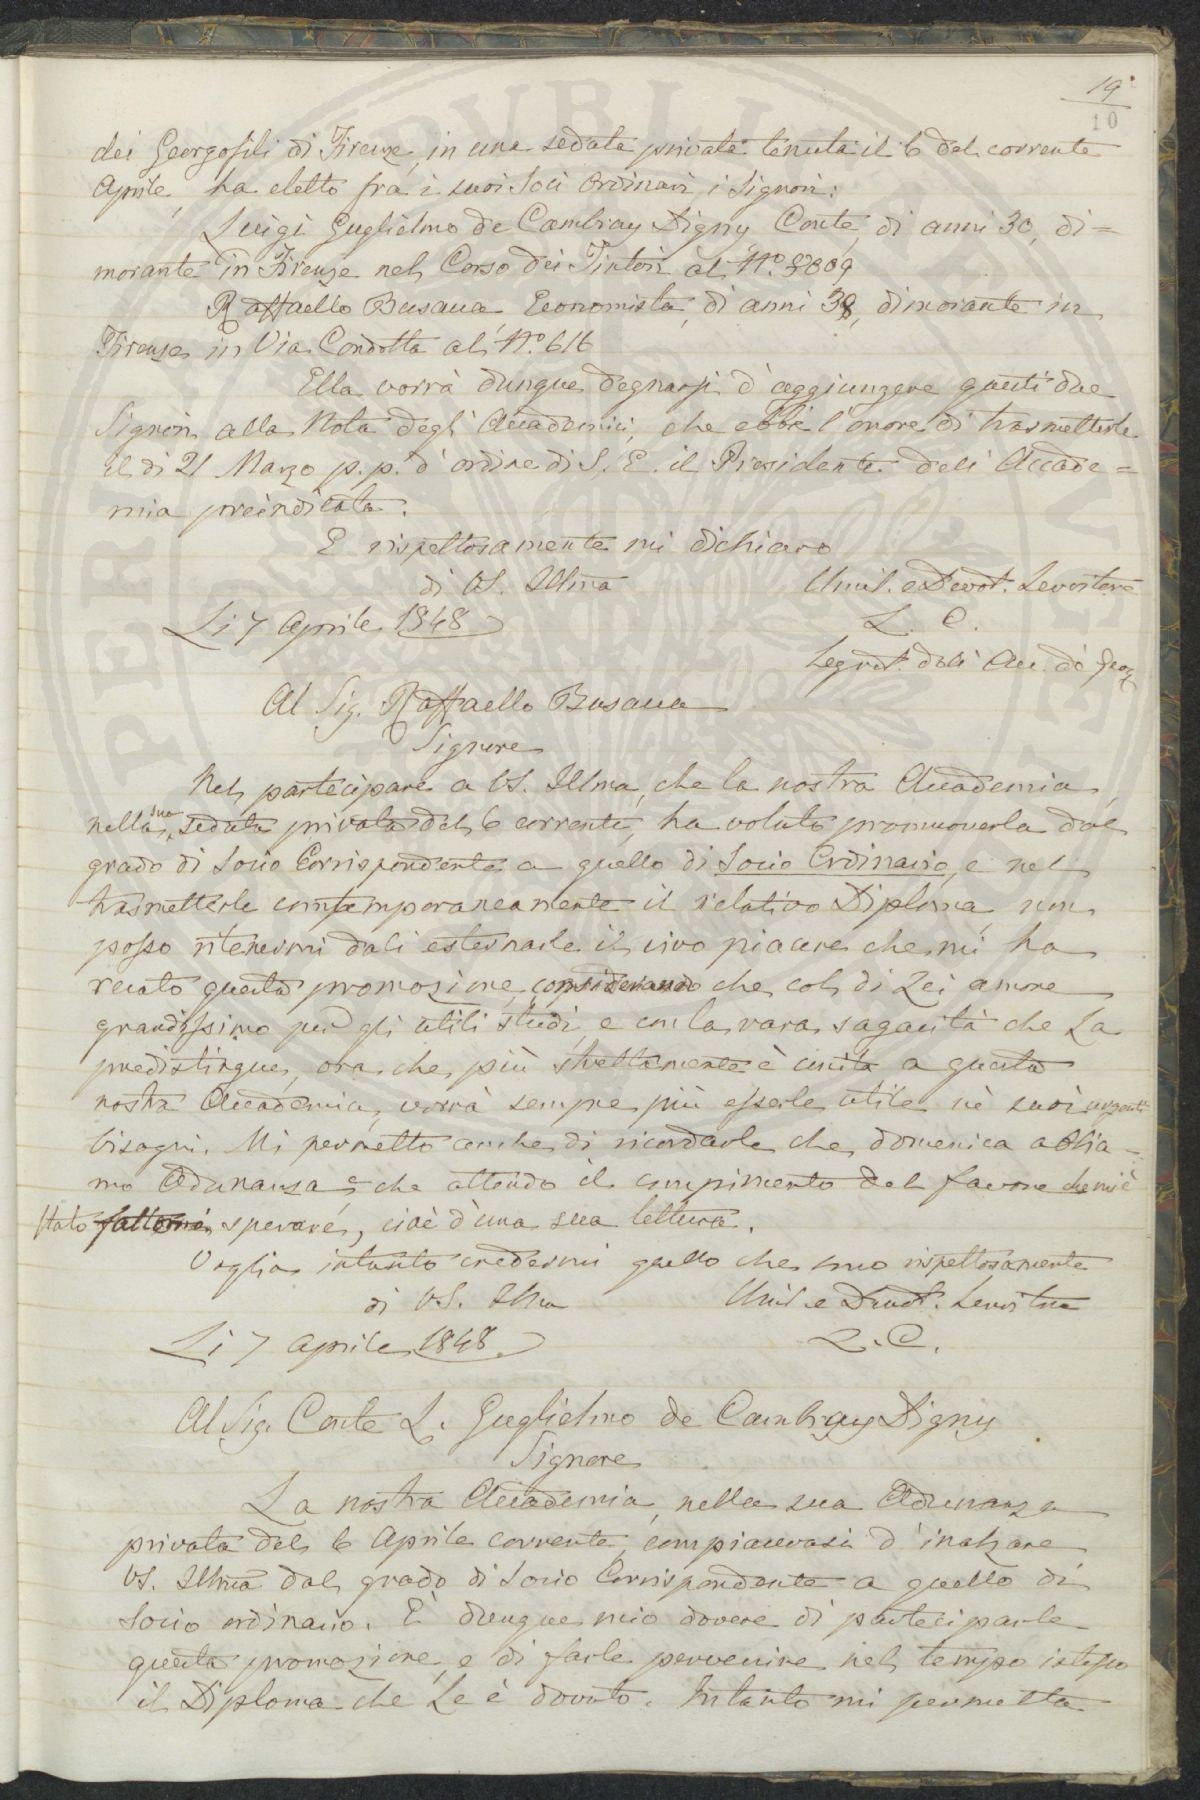 19
10
dei Georgofili di Firenze, in una seduta privata tenuta il 6 del corrente
Aprile, ha eletto fra i suoi Soci Ordinari i Signori:
Luigi Guglielmo de Cambray Digny Conte, di anni 30, di=
morante in Firenze nel Corso dei Tintori al N.°
Raffaello Busacca Economista, di anni 38, dimorante in
Firenze in Via Condotta al N.° 616
Ella vorrà dunque degnarsi d'aggiungere questi due
Signori alla Nota degli Accademici, che ebbi l'onore di trasmetterle
il dì 21 Marzo p.p. d'ordine di S. E. il Presidente dell'Accade=
mia preindicata.
E rispettosamente mi dichiaro
di VS. Illma
Umil. e Devot. Servitore
Li 7 Aprile 1848
L. C.
Segret. dell'Acc. de' Georg
Al Sig. Raffaello Busacca
Signore
Nel partecipare a VS. Illma, che la nostra Accademia,
nella sua seduta privata del 6 corrente, ha voluto promuoverla dal
grado di Socio Corrispondente a quello di Socio Ordinario, e nel
trasmetterle contemporaneamente il relativo Diploma, non
posso ritenermi dall'esternarle il vivo piacere che mi ha
recato questa promozione, considerando che col di Lei amore
grandissimo per gli utili studi, e con la rara sagacità che La
predistingue, ora che più strettamente è unita a questa
nostra Accademia, vorrà sempre più esserle utile nè suoi urgenti
bisogni. Mi permetto anche di ricordarle che domenica abbia=
mo Adunanza e che attendo il compimento del favore che mi è
stato fattomi sperare, cioè d'una sua lettura.
Voglia intanto credermi quello che sono rispettosamente
di VS. Illma
Umil. e Devot. Servitore
Li 7 Aprile 1848.
L. C.
Al Sig. Conte L. Guglielmo de Cambray Digny
Signore
La nostra Accademia, nella sua Adunanza
privata del 6 Aprile corrente, compiacevasi d'inalzare
VS. Illma dal grado di Socio Corrispondente a quello di
Socio ordinario. È dunque mio dovere di parteciparle
questa promozione, e di farle pervenire nel tempo istesso
il Diploma che Le è dovuto. Intanto mi permetta